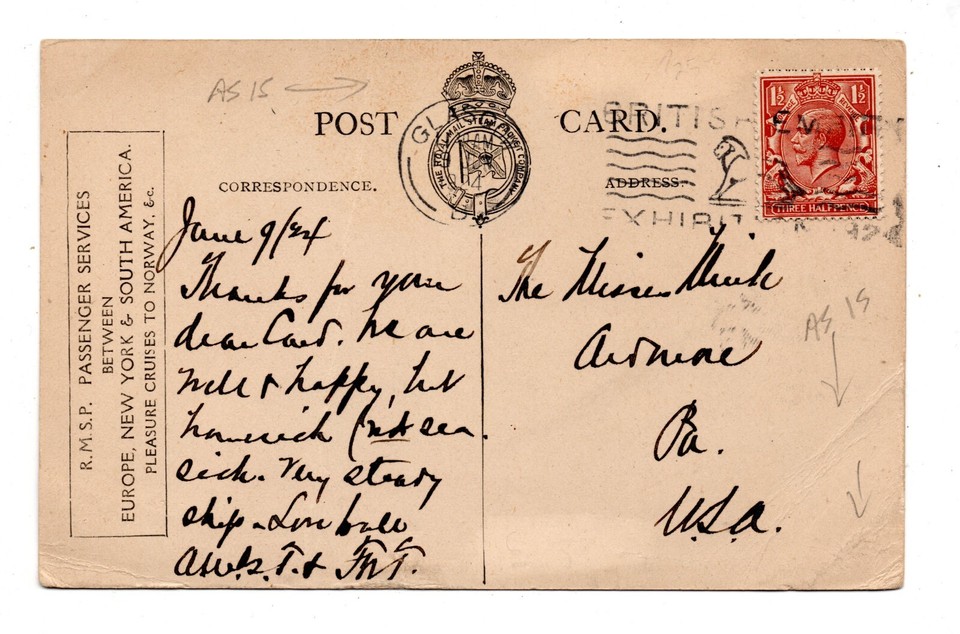 AS IS
POST CARD.
THE ROYAL MAIL STEAM PACKET COMPANY
GLA
14
BRITISH
EM
EXHIBIT
1924
1½ 1½
THREE HALFPENCE
CORRESPONDENCE.
ADDRESS:
R.M.S.P. PASSENGER SERVICES
BETWEEN
EUROPE, NEW YORK & SOUTH AMERICA.
PLEASURE CRUISES TO NORWAY, &c.
June 9/24
Thanks for your
dear Card. We are
well & happy, but
homesick (not sea
sick. Very steady
ship. Love to all
T. &
The Misses Mink
Ardmore
Pa.
U.S.A.
AS IS